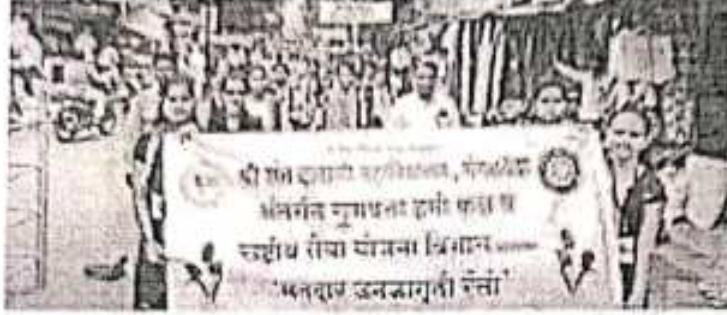 श्री संत दामाजी महाविद्यालय, मंगळवेढा
अंतर्गत गुणवत्ता हमी कक्ष व
राष्ट्रीय सेवा योजना विभाग
'मतदार जनजागृती रॅली'